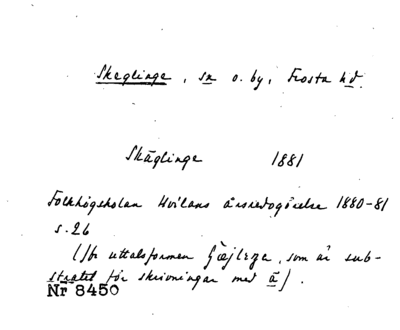 Skeglinge, sn o. by, Frosta hd.
Skäglinge 1881
Folkhögskolan Hvilans årsredogörelse 1880-81
s. 26
(Jfr uttalsformen, som är sub-
stratet för skrivningar med ä).
Nr 8450